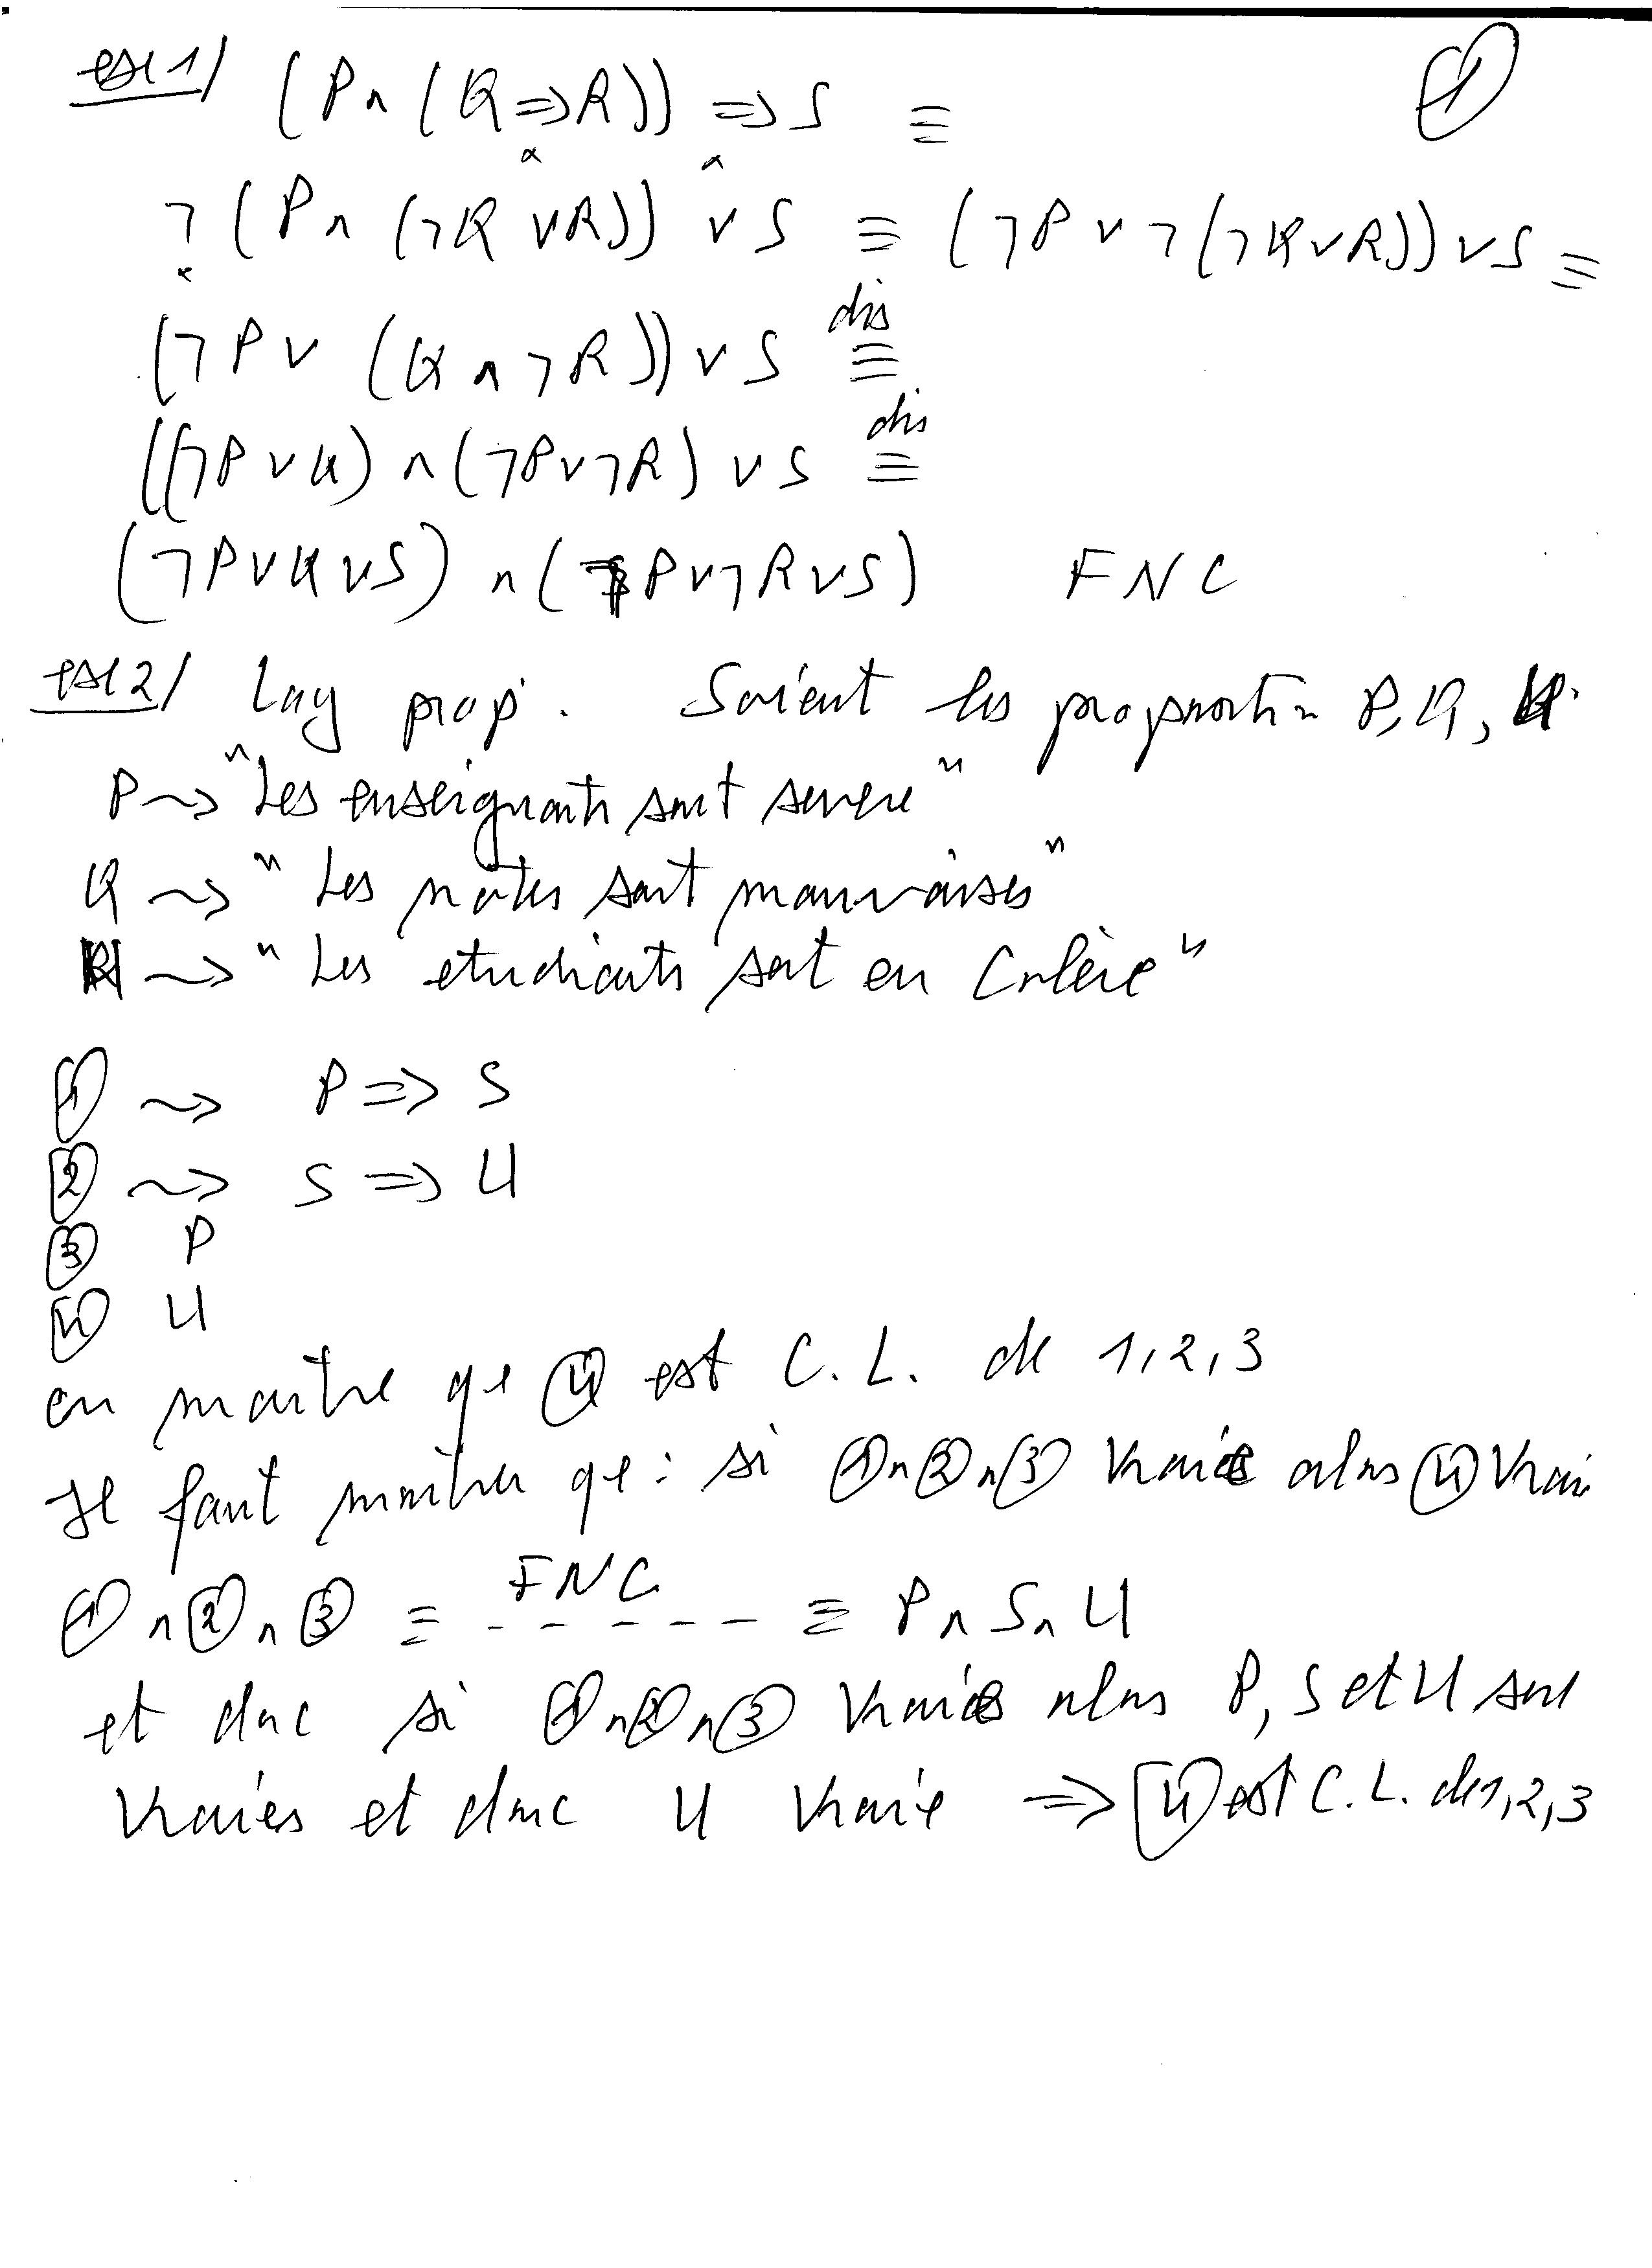 exc 1/ (P ∧ (Q ⇒ R)) ⇒ S ≡ ①
¬ (P ∧ (¬Q ∨ R)) ∨ S ≡ (¬P ∨ ¬(¬Q ∨ R)) ∨ S ≡
(¬P ∨ (Q ∧ ¬R)) ∨ S ≡ dis
((¬P ∨ Q) ∧ (¬P ∨ ¬R) ∨ S ≡ dis
(¬P ∨ Q ∨ S) ∧ (¬P ∨ ¬R ∨ S) FNC
exc 2/ Lag prop. Soient les proposition P, Q,
P ⇝ "Les enseignants sont severe"
Q ⇝ "Les notes sont mauvaises"
⇝ "Les etudiants sont en Colère"
① ⇝ P ⇒ S
② ⇝ S ⇒ U
③ P
④ U
on montre que ④ est C.L. de 1,2,3
Il faut montrer que : si ①∧②∧③ Vraie alors ④ Vraie
①∧②∧③ ≡ FNC - - - - - - ≡ P ∧ S ∧ U
et donc si ①∧②∧③ Vraie alors P, S et U sont
Vraies et donc U Vraie ⇒ ④ est C.L. de 1,2,3